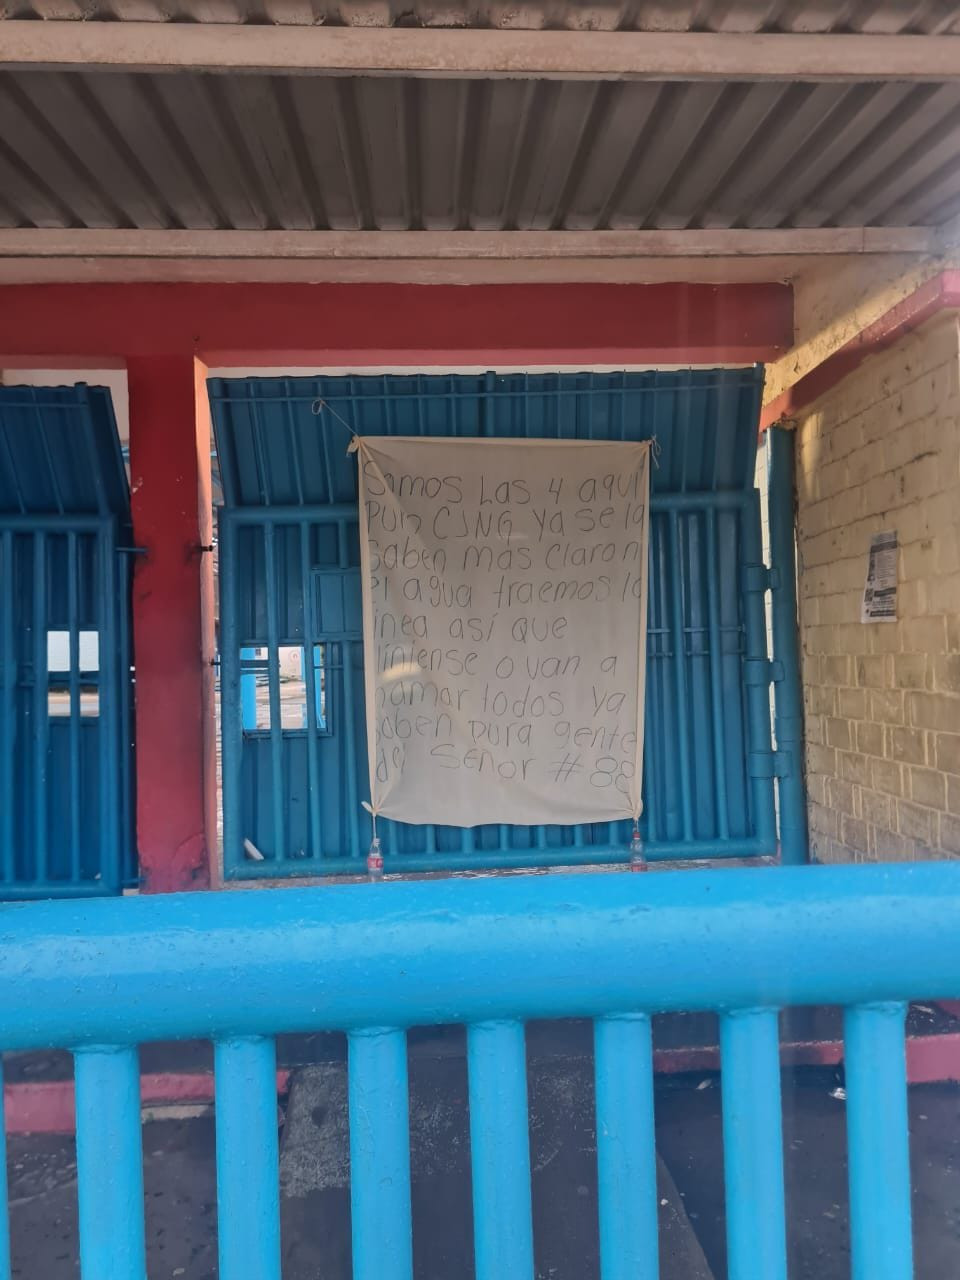 Somos Las 4 aqui
Puro CJNG ya se la
Saben más claro ni
el agua traemos la
inea así que
liniense o van a
mamar todos ya
saben pura gente
del Señor #88